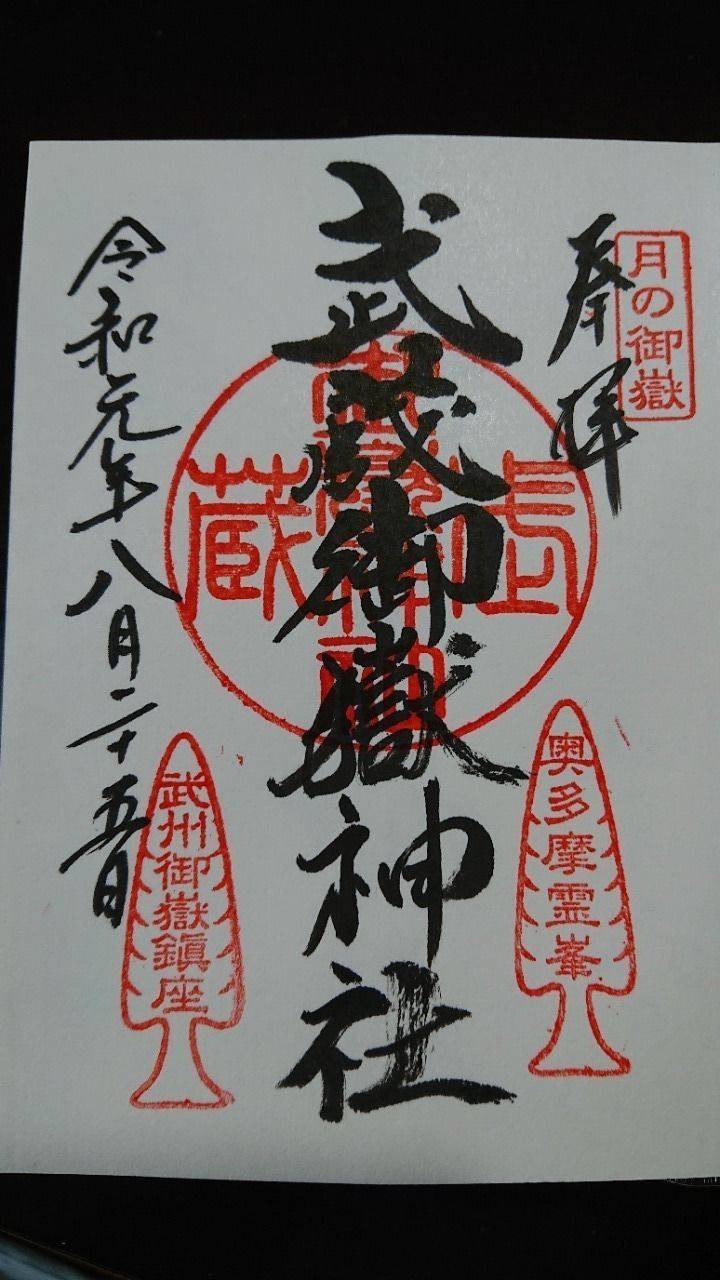 月の御嶽
奉拝
奥多摩霊峯
武蔵御嶽神社
武蔵
令和元年八月二十五日
武州御嶽鎮座